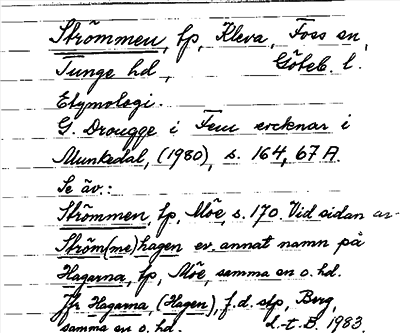 Strömmen, tp, Kleva, Foss sn,
Tunge hd, Göteb. l.
Etymologi.
G. Drougge i Fem socknar i
Munkedal, (1980), s. 164, 67 A.
Se äv.:
Strömmen, tp, Möe, s. 170. Vid sidan av
Ström(me)hagen ev. annat namn på
Hagarna, tp, Möe, samma sn o. hd.
Jfr Hagarna, (Hagen), f.d. stp, Berg,
samma sn o. hd. L-t. B. 1983.